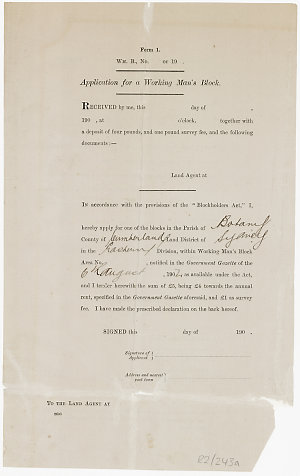 Form 1.
WM. B., No. or 19 .
Application for a Working Man's Block.
RECEIVED by me, this day of ,
190 , at o'clock, together with
a deposit of four pounds, and one pound survey fee, and the following
documents:—
Land Agent at
IN accordance with the provisions of the "Blockholders Act," I,
hereby apply for one of the blocks in the Parish of Botany
County of Cumberland, Land District of Sydney
in the Eastern Division, within Working Man's Block
Area No. , notified in the Government Gazette of the
6th August , 1902, as available under the Act,
and I tender herewith the sum of £5, being £4 towards the annual
rent, specified in the Government Gazette aforesaid, and £1 as survey
fee. I have made the prescribed declaration on the back hereof.
SIGNED this day of 190 .
Signature of
Applicant.
Address and nearest
post town
TO THE LAND AGENT AT
R2/243a